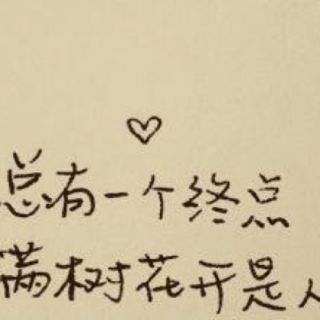 总有一个终点
满树花开是人